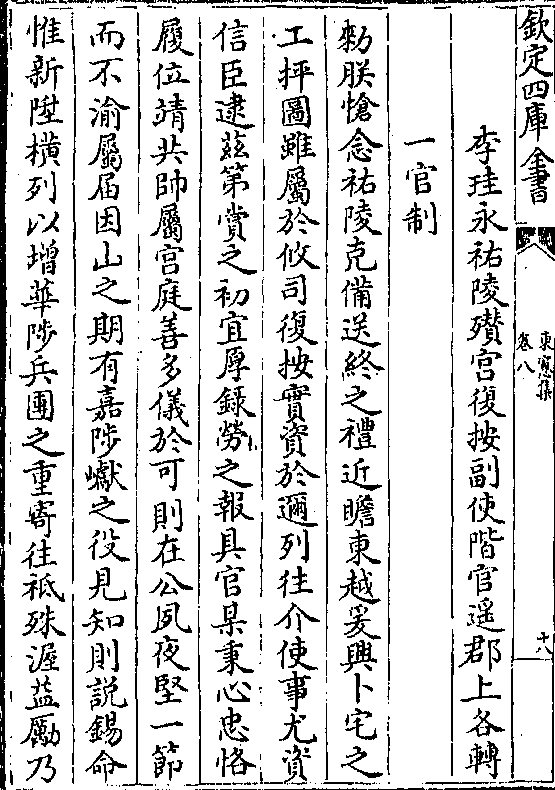 欽定四庫全書
東窻集
卷八
十八
李珪永祐陵殯宫復按副使階官遥郡上各轉
一官制
勅朕愴念祐陵克備送終之禮近瞻東越爰興卜宅之
工抨圖雖屬於攸司復按實資於邇列往介使事尤資
信臣逮兹第賞之初宜厚録勞之報具官某秉心忠恪
履位靖共帥屬宫庭善多儀於可則在公夙夜堅一節
而不渝屬届因山之期有嘉陟巘之役見知則説錫命
惟新陞横列以增華陟兵團之重寄往祗殊渥益勵乃